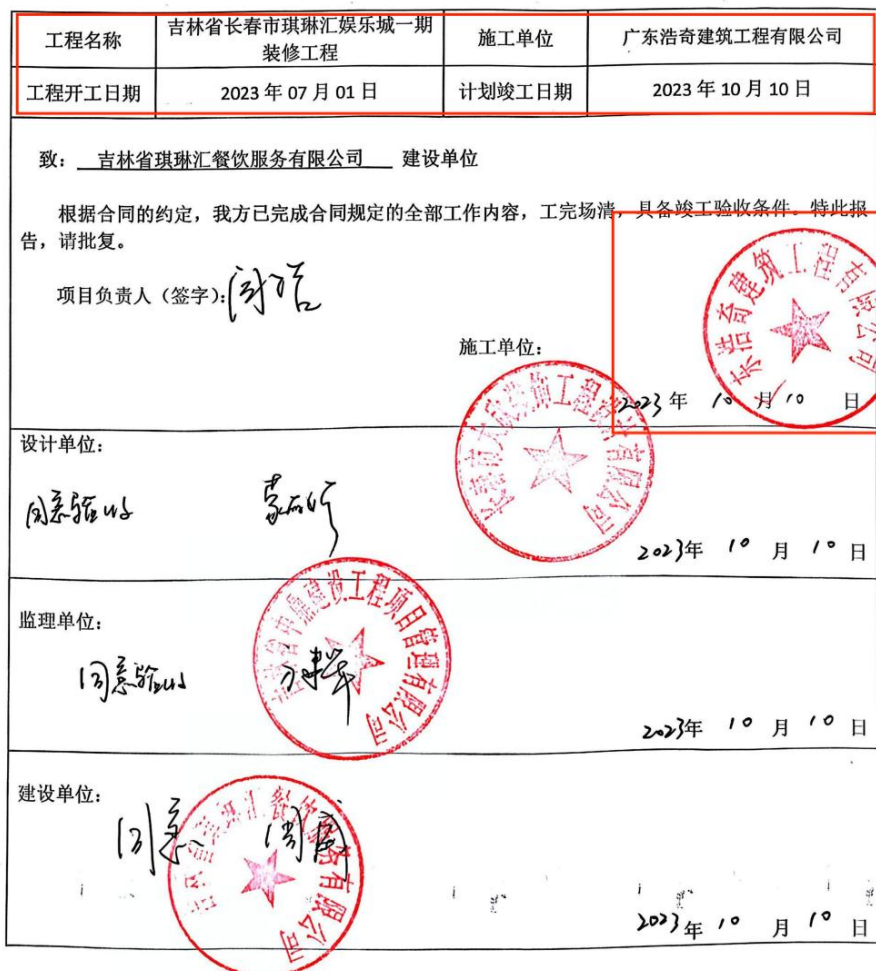 工程名称 吉林省长春市琪琳汇娱乐城一期 施工单位 广东浩奇建筑工程有限公司
装修工程
工程开工日期 2023年07月01日 计划竣工日期 2023年10月10日
致：吉林省琪琳汇餐饮服务有限公司 建设单位
根据合同的约定，我方已完成合同规定的全部工作内容，工完场清，具备竣工验收条件。特此报
告，请批复。
项目负责人（签字）：
广东浩奇建筑工程有限公司
施工单位：
2023年 10 月 10 日
设计单位：
同意验收
2023年 10 月 10 日
监理单位：
同意验收
2023年 10 月 10 日
建设单位：
同意
吉林省琪琳汇餐饮服务有限公司
2023年 10 月 10 日